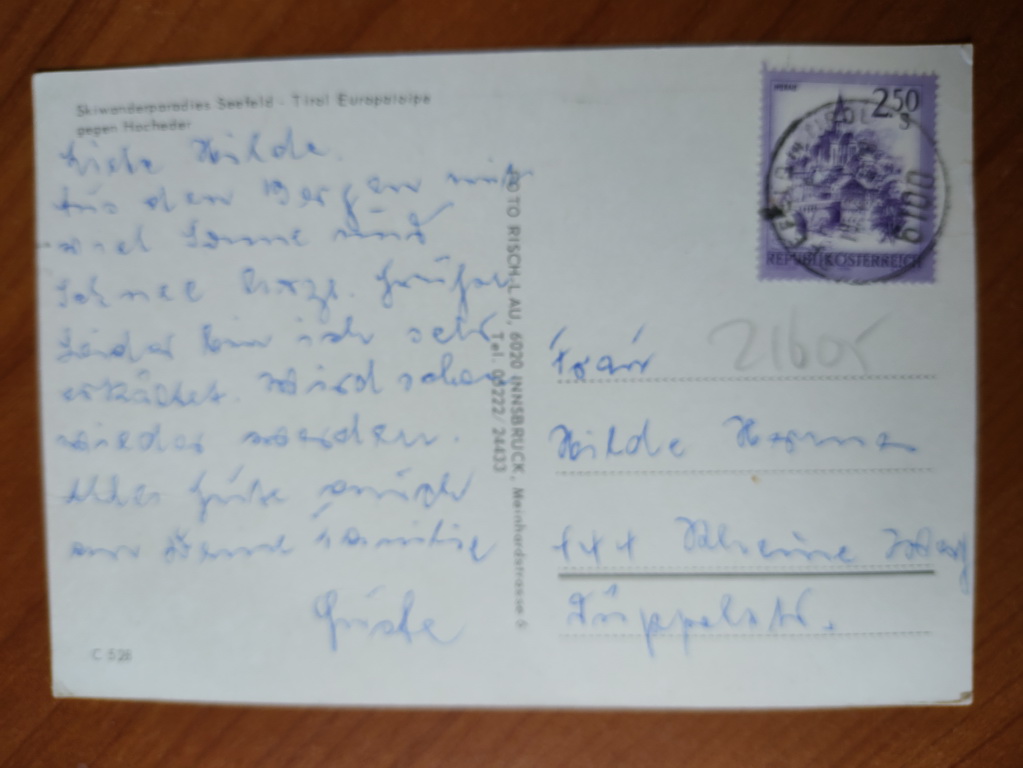 Skiwanderparadies Seefeld - Tirol Europaloipe
gegen Hocheder
Liebe Hilde.
Aus den Bergen mit
viel Sonne und
Schnee herzl. Grüße
Leider bin ich sehr
erkältet. Wird schon
wieder werden.
Alles Gute auch
an Deine Familie
Guste
C 526
FOTO RISCH-LAU, 6020 INNSBRUCK, Meinhardstrasse 6
Tel. 05222/24433
2.50
S
REPUBLIK ÖSTERREICH
6100
Frau
21605
Hilde
444 Rheine
Düppelstr.